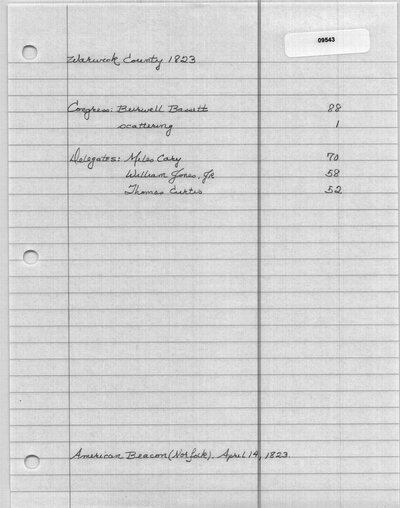 09543
Warwick County 1823
Congress: Burwell Bassett 88
scattering 1
Delegates: Miles Cary 70
William Jones, Jr 58
Thomas Curtis 52
American Beacon (Norfolk). April 14, 1823.